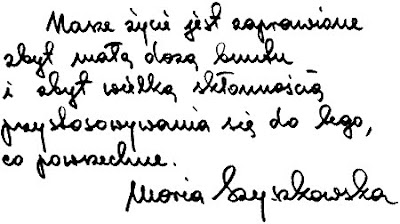 Nasze życie jest zaprawione
zbyt małą dozą buntu
i zbyt wielką skłonnością
przystosowywania się do tego,
co powszechne.
Maria Szyszkowska